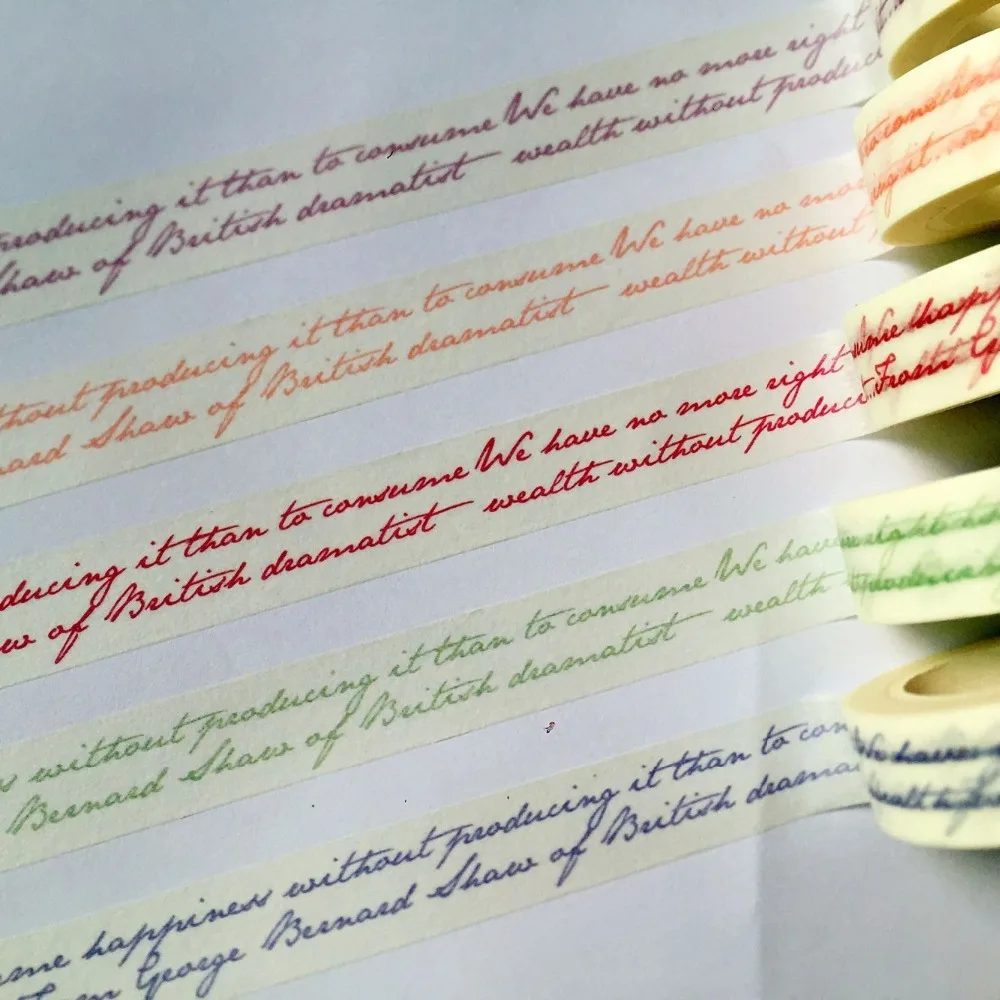 producing it than to consume We have no more right
Shaw of British dramatist wealth without produc
to consume
thout producing it than to consume We have no mor
nard Shaw of British dramatist wealth without
ducing it than to consume We have no more right
w of British dramatist wealth without product...From G
s without producing it than to consume We have
Bernard Shaw of British dramatist wealth
me happiness without producing it than to con
From George Bernard Shaw of British drama